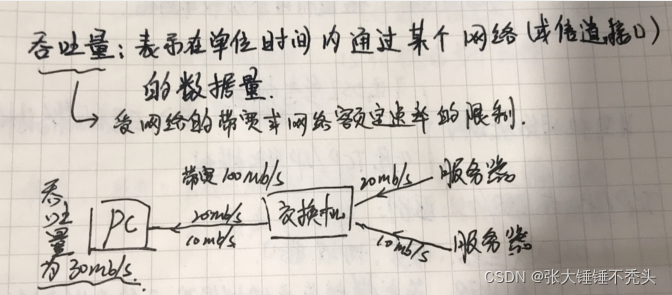 吞吐量：表示在单位时间内通过某个网络（或信道、接口）
的数据量.
受网络的带宽或网络额定速率的限制.
带宽100mb/s
20mb/s
服务器
吞吐量为30mb/s.
PC
20mb/s
10mb/s
交换机
10mb/s
服务器
CSDN @张大锤锤不秃头